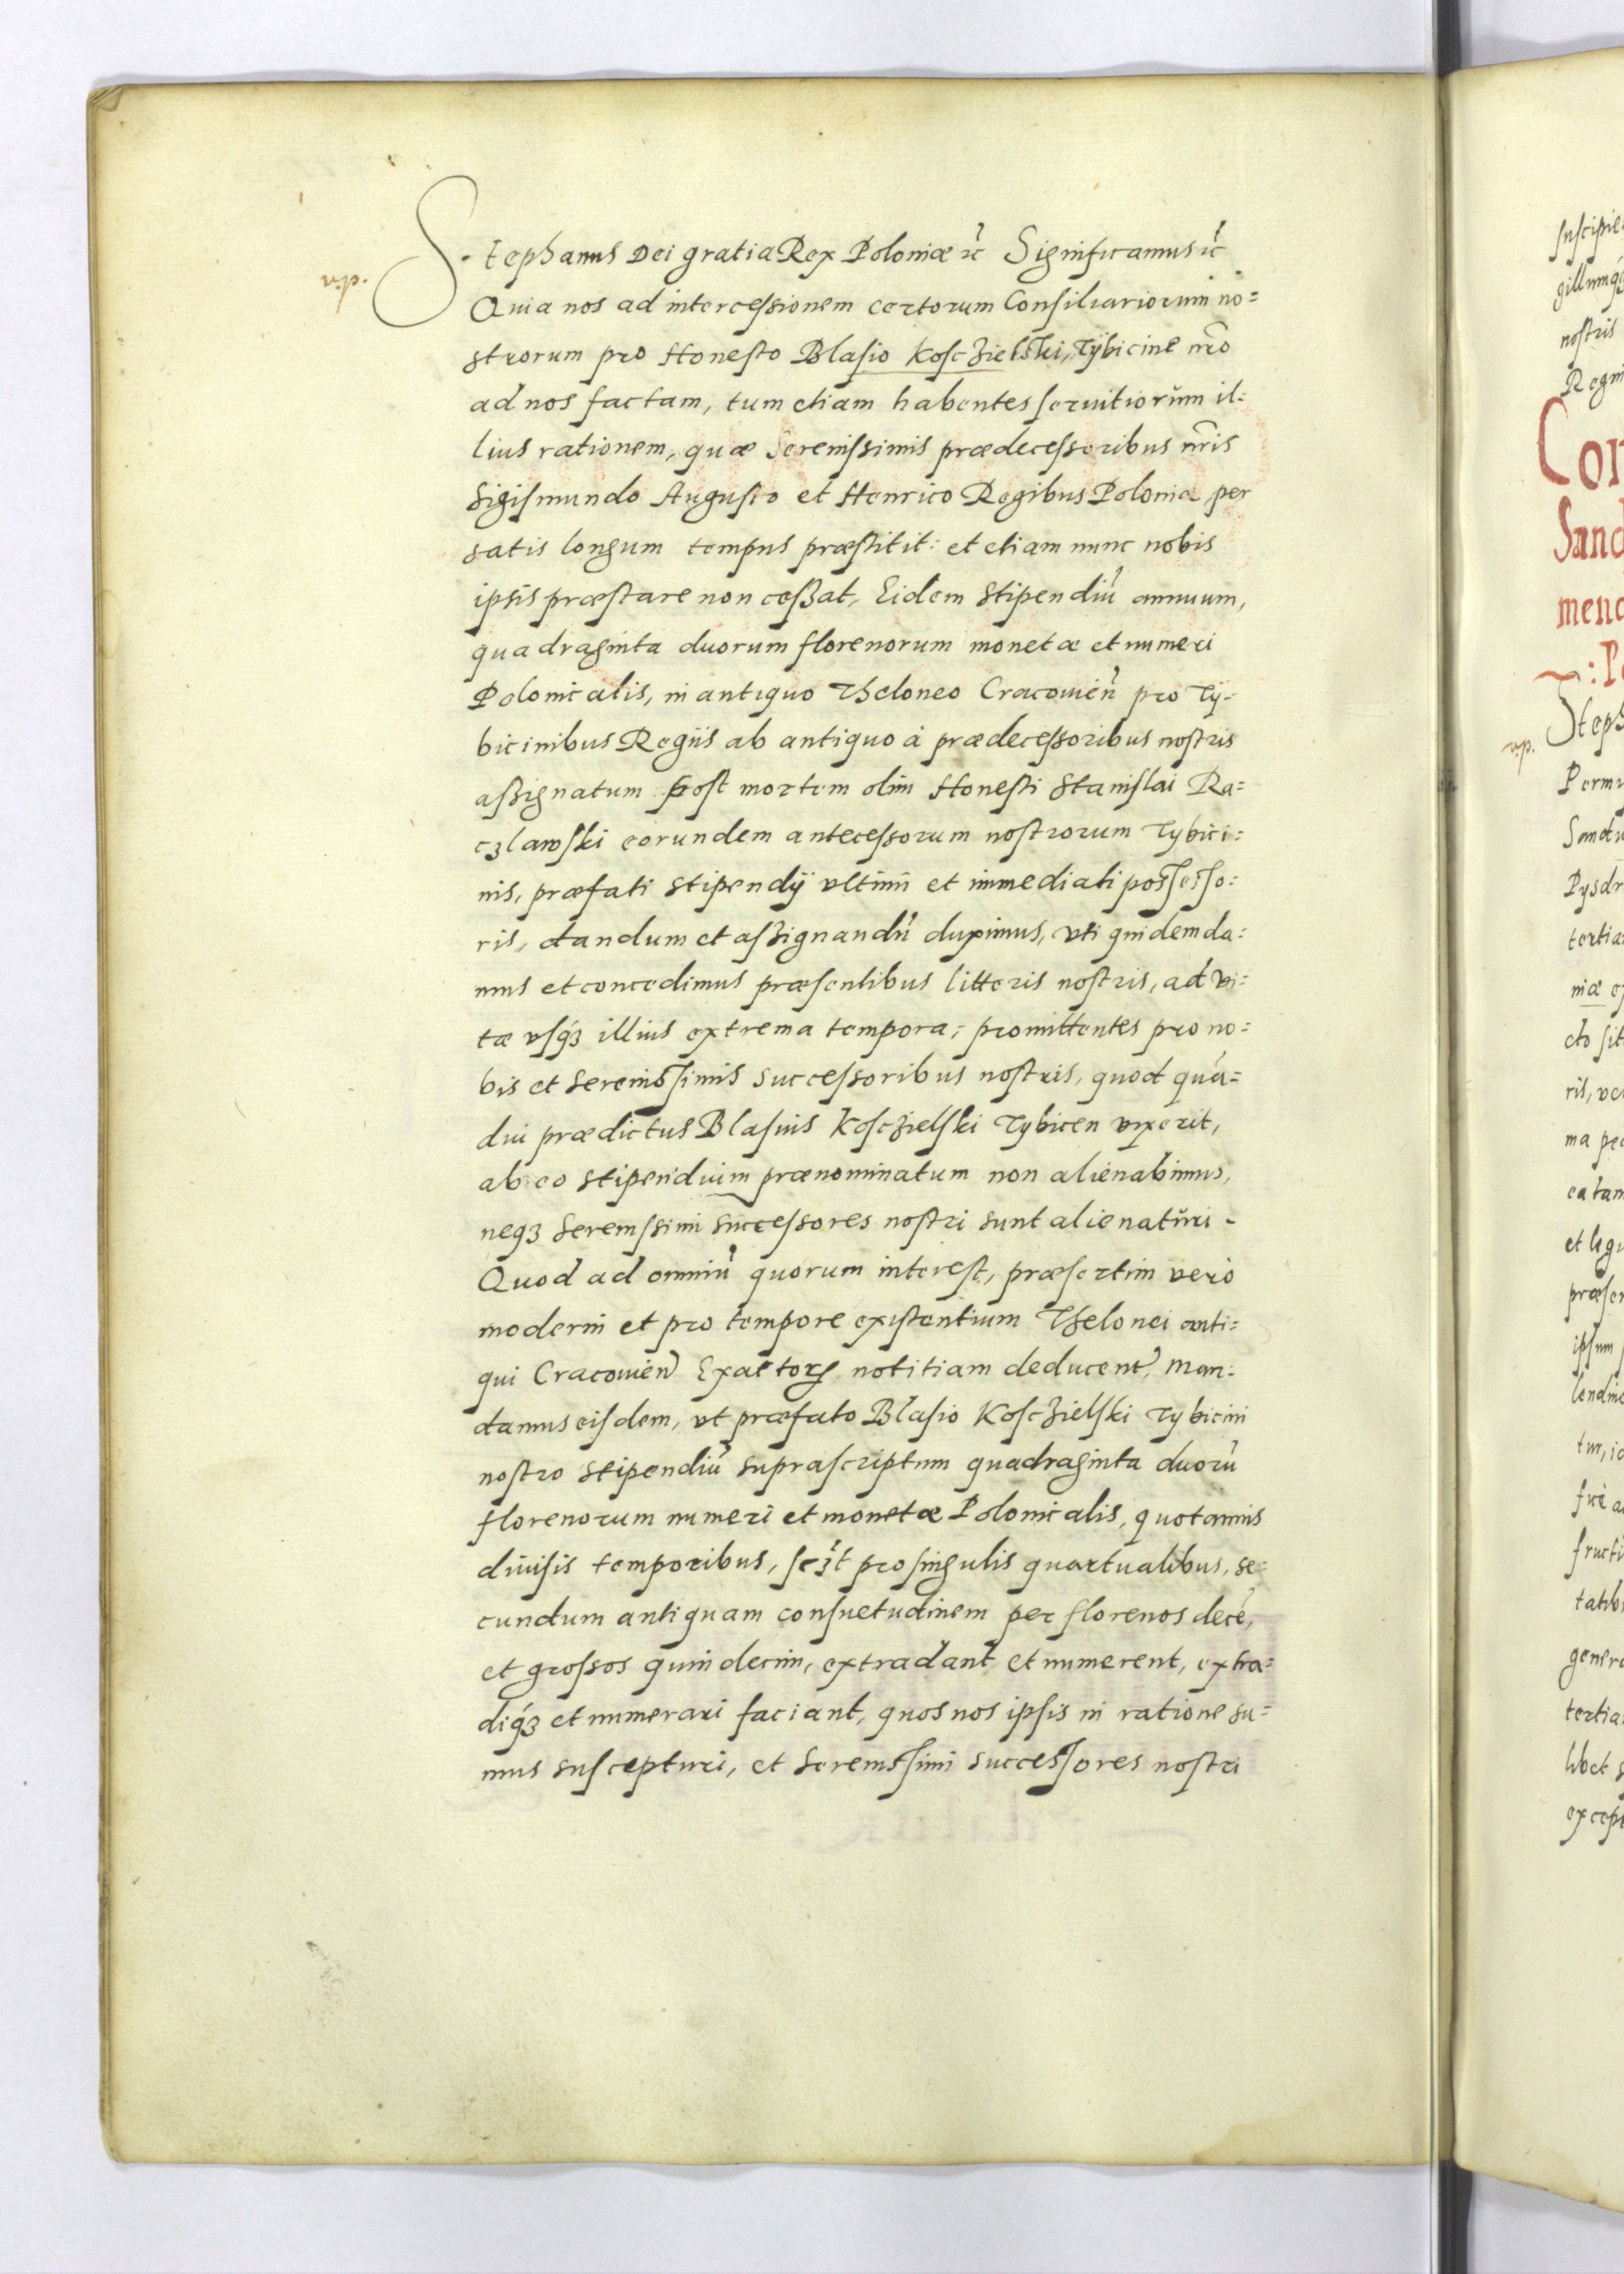 Stephanus Dei gratia Rex Poloniæ ꝛc̃ Significamus ꝛc̃
Quia nos ad intercessionem certorum Consiliariorum no=
strorum pro Honesto Blasio Koscʒielski, Tÿbicine nr̃o
ad nos factam, tum etiam habentes seruitiorum il=
lius rationem, quæ Serenissimis prædecessoribus nr̃is
Sigismundo Augusto et Henrico Regibus Poloniæ per
satis longum tempus præstitit: et etiam nunc nobis
ipsis præstare non cessat, Eidem Stipendiũ annuum,
quadraginta duorum florenorum monetæ et numeri
Polonicalis, in antiquo Theloneo Cracouieñ pro Tÿ=
bicinibus Regiis ab antiquo à prædecessoribus nostris
assignatum post mortem olim Honesti Stanislai Ra=
cʒlawski eorundem antecessorum nostrorum Tybici=
nis, præfati stipendÿ vltimi et immediati possesso=
ris, dandum et assignandũ duximus, vti quidem da=
mus et concedimus præsentibus litteris nostris, ad vi=
tæ vsqꝫ illius extrema tempora, promittentes pro no=
bis et Serenissimis successoribus nostris, quod quã=
diu prædictus Blasius Koscʒielski Tybicen vixerit,
ab eo stipendium prænominatum non alienabimus,
neqꝫ Serenissimi successores nostri sunt alienaturi.
Quod ad omniũ quorum interest, præsertim vero
moderni et pro tempore existentium Thelonei anti=
qui Cracouieñ Exactorꝝ notitiam deducent̃, man=
damus eisdem, vt præfato Blasio Koscʒielski Tybicini
nostro stipendiũ suprascriptum quadraginta duorũ
florenorum numeri et monetæ Polonicalis, quotannis
diuisis temporibus, sciꝫt pro singulis quartualibus, se=
cundum antiquam consuetudinem per florenos decẽ,
et grossos quindecim, extradant et numerent, extra=
diqꝫ et numerari faciant, quos nos ipsis in ratione su=
mus suscepturi, et Serenissimi successores nostri
suscipie
nostris
Regni
Con
Sand
menc
Steph
tertia
ma pe
et legu
ipsum
genera
tertia